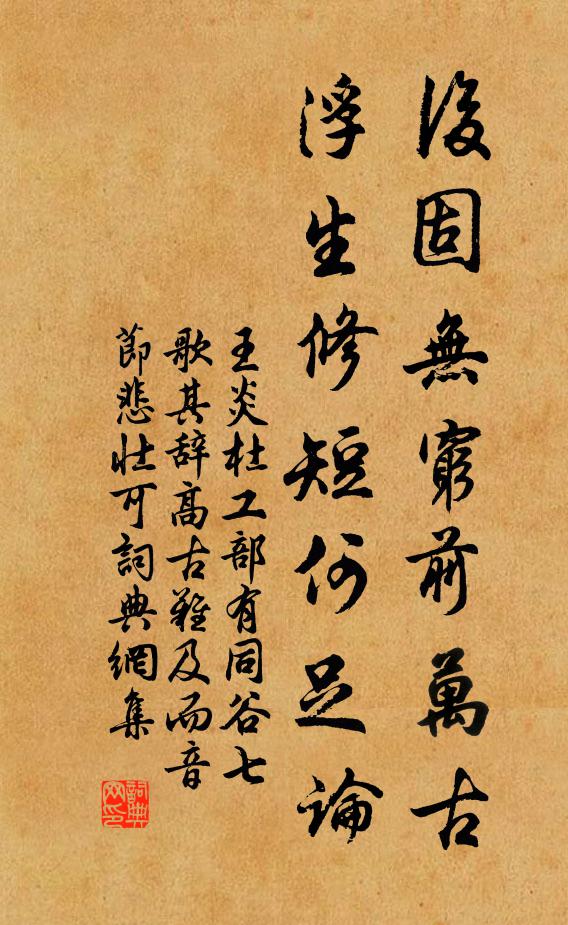 後固無窮前萬古
浮生修短何足論
王炎杜工部有同谷七
歌其辞高古難及而音
節悲壯可詞典網集
詞典
网印